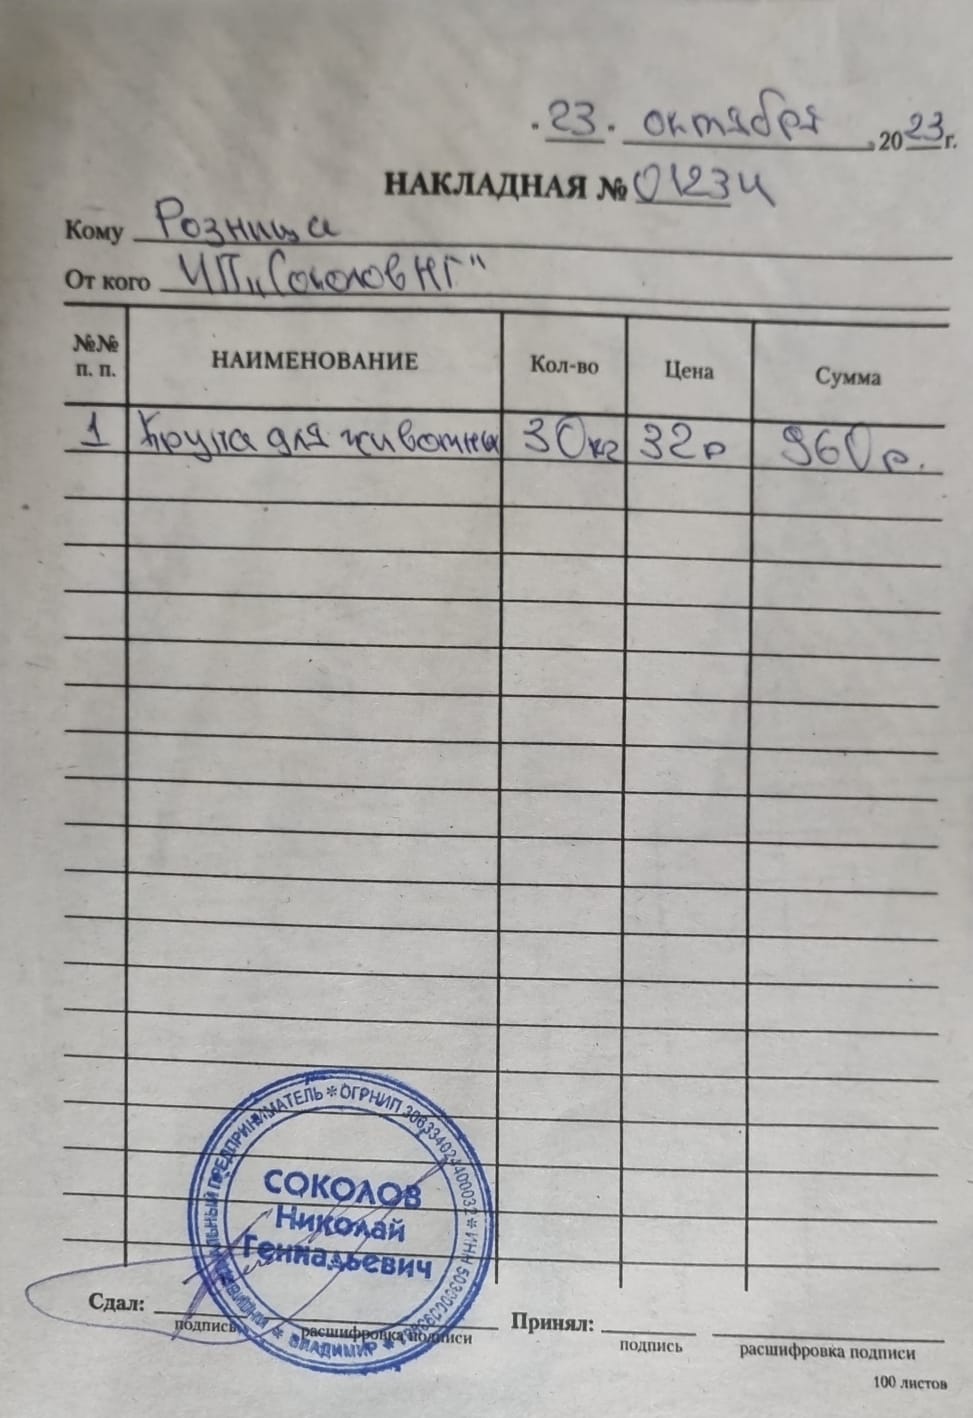 "23" октября 2023 г.
НАКЛАДНАЯ № 01234
Кому Розница
От кого ИП "Соколов НГ"
№№ п. п. НАИМЕНОВАНИЕ Кол-во Цена Сумма
1 Крупа для животных 30кг 32р 960р.
ИНДИВИДУАЛЬНЫЙ ПРЕДПРИНИМАТЕЛЬ * ОГРНИП 306334024400032 * ИНН
* ВЛАДИМИР *
СОКОЛОВ
Николай
Геннадьевич
Сдал: Принял:
подпись расшифровка подписи подпись расшифровка подписи
100 листов